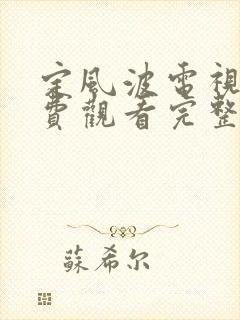 定風波電視
費觀看完整
蘇希尔